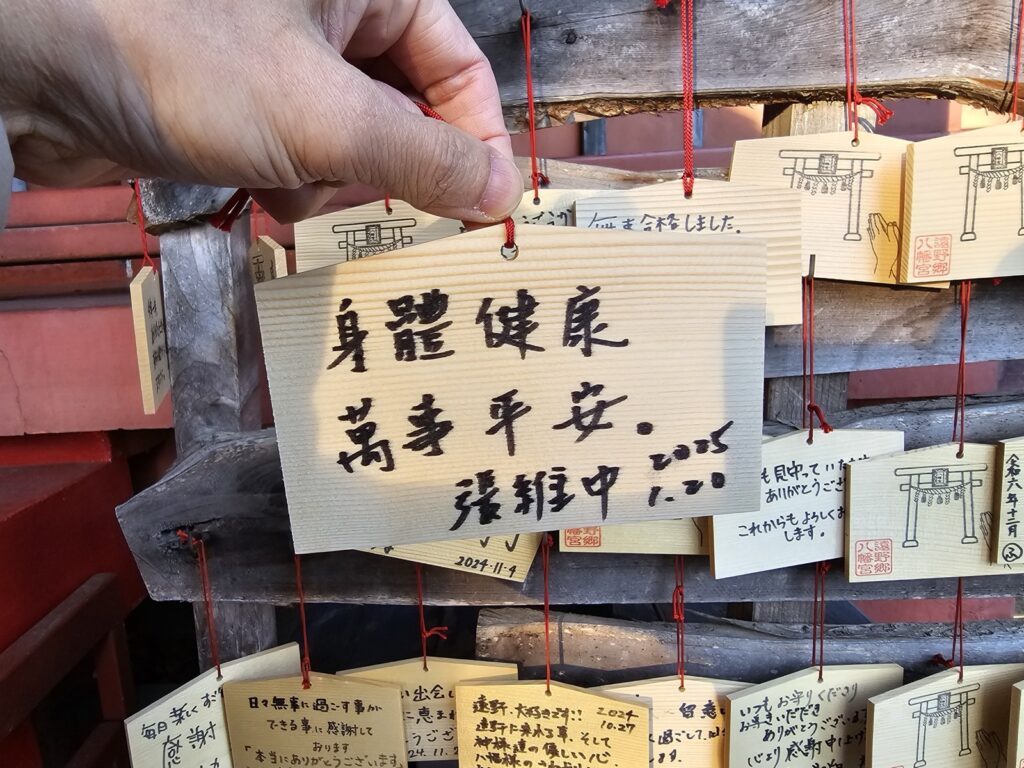 身體健康
萬事平安。
張維中 2025
1.20
合格しました。
遠野郷
八幡宮
も見守っていただき
ありがとうござ
これからもよろしくお
します。
遠野郷
八幡宮
令和六年十二月
2024.11.4
毎日楽しくす
感謝
日々無事に過ごす事が
できる事に感謝して
おります
本当にありがとうございます。
出会い
に恵ま
遠野、大好きです!! 2024
10.27
遠野に来れる事、そして
神様達の優しい心、
留意
過ごして、
ます。
いつもお守りくださり
お導きいただき
ありがとうございま
心より感謝申し上げ